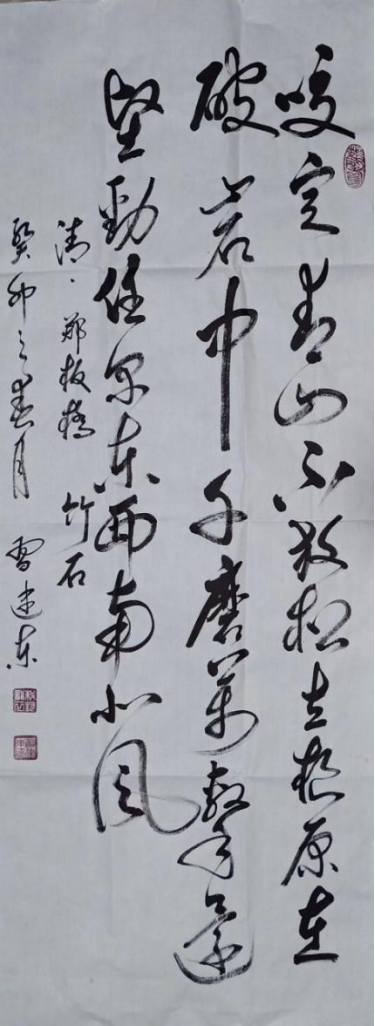 咬定青山不放松立根原在
破岩中千磨万击还
坚劲任尔东西南北风
清·郑板桥 竹石
癸卯之春月 曹建东